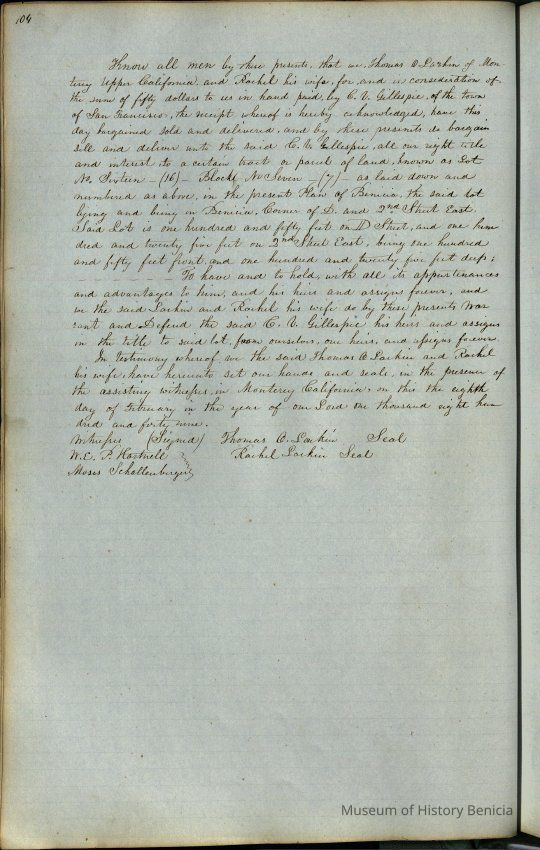 104
Know all men by these presents, that we, Thomas O Larkin of Mon
terey Upper California, and Rachel his wife, for, and in consideration of
the sum of fifty dollars to us in hand paid, by C. V. Gillespie, of the town
of San Francisco, the receipt whereof is hereby acknowledged, have this
day bargained sold and delivered, and by these presents do bargain
sell and deliver unto the said C. V. Gillespie, all our right title
and interest to a certain tract or parcel of land, known as Lot
No. Sixteen – (16) – Block No Seven – (7) – as laid down and
numbered as above, in the present Plan of Benicia, the said lot
lying and being in Benicia, Corner of D. and 2nd Street East.
Said Lot is one hundred and fifty feet on D Street, and one hun
dred and twenty five feet on 2nd Street East, being one hundred
and fifty feet front, and one hundred and twenty five feet deep;
To have and to hold, with all its appurtenances
and advantages to him, and his heirs and assigns forever, and
we the said Larkin and Rachel his wife do by these presents War
rant and Defend the said C. V. Gillespie his heirs and assigns
in the title to said lot, from ourselves, our heirs, and assigns forever.
In testimony whereof we the said Thomas O Larkin and Rachel
his wife, have hereunto set our hands and seals, in the presence of
the assisting witnesses, in Monterey California, on this the eighth
day of February in the year of our Lord one thousand eight hun
dred and forty nine.
Witnesses (Signed) Thomas O. Larkin Seal
W. E. P. Hartnell Rachel Larkin Seal
Moses Schallenberger
Museum of History Benicia